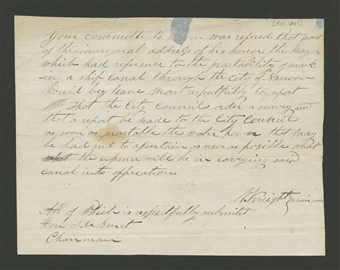 Your committee to whom was refired that part
of the inaugural address of his honor the Mayor
which had reference to the practability of mak
ing a ship canal through the City of
would beg leave most respectfully to report
That the City Council order a survey and
that a report be made to the City Council
as soon as practable the water power that may
be had and to ascertain as near as posible what
the expence will be in carrying said
canal into opperation
Wright
All of Which is respectfully submited
Chairman